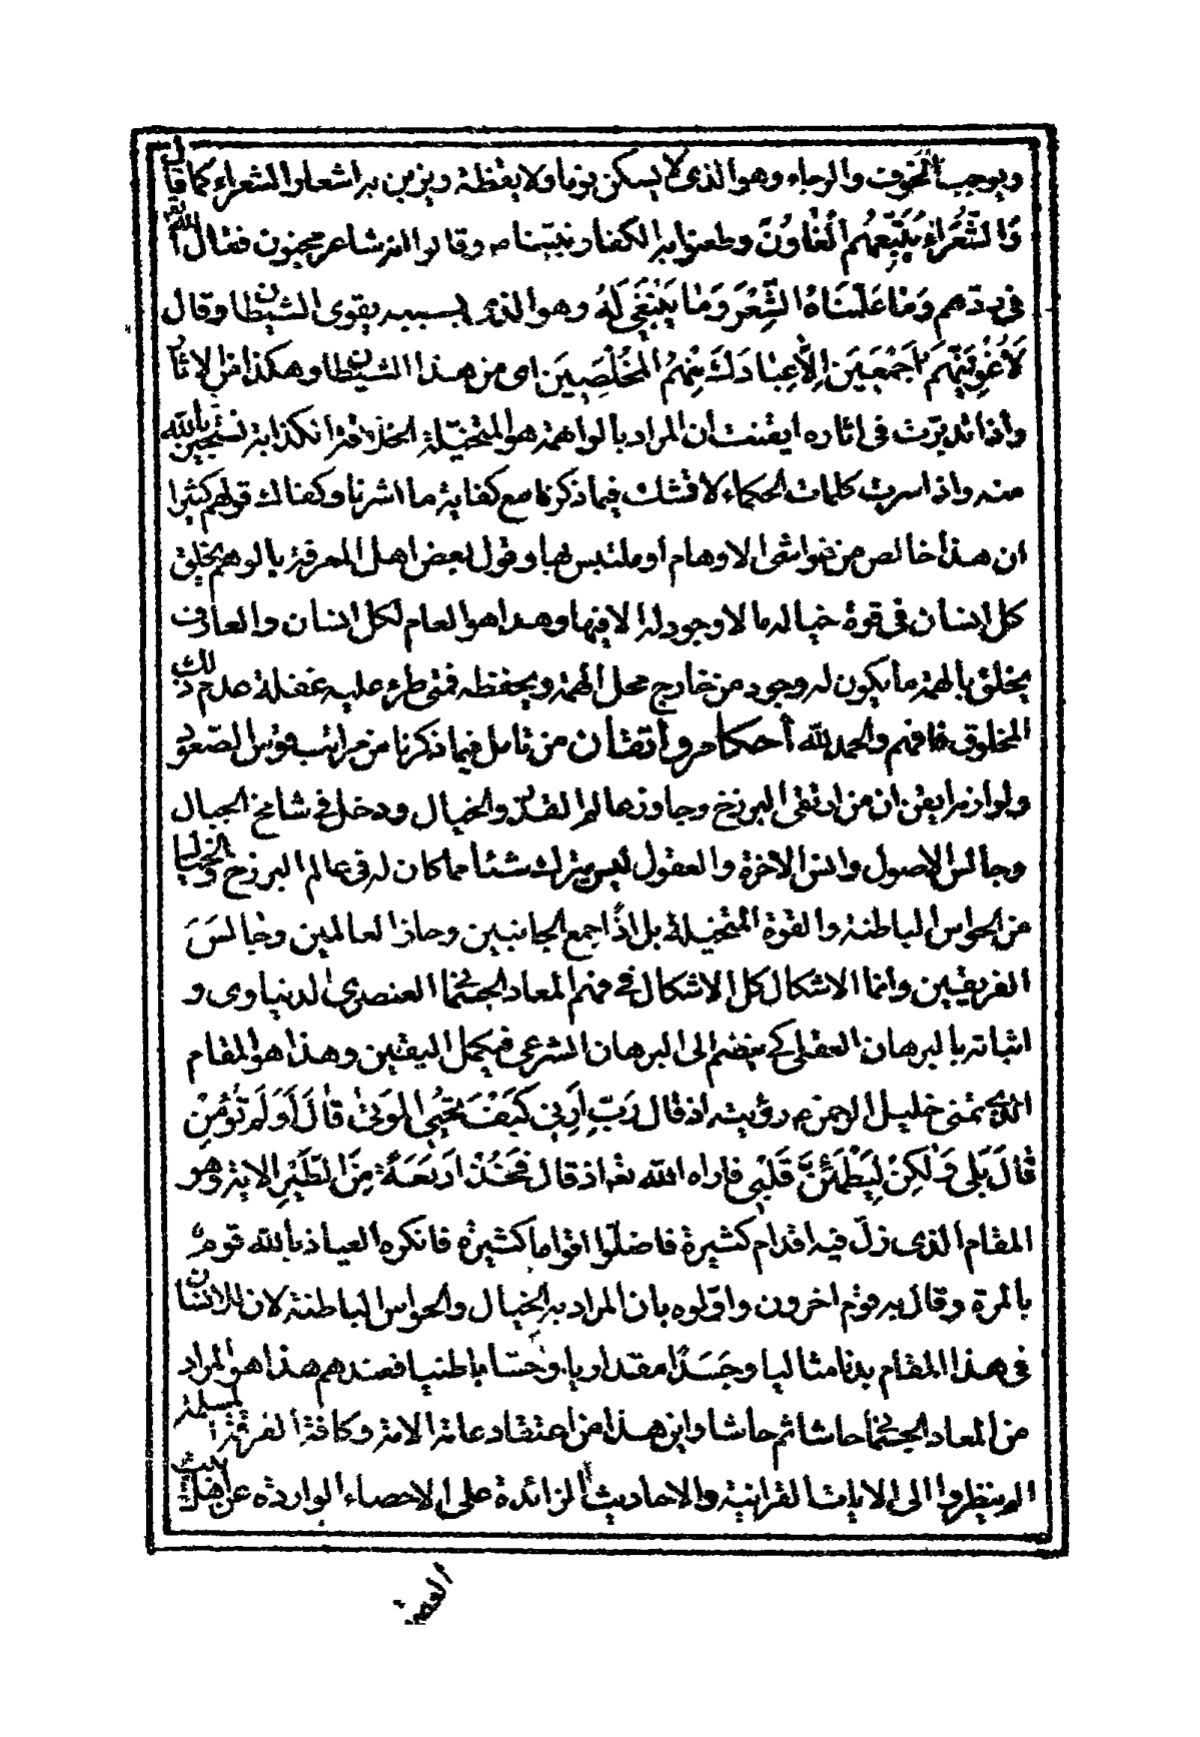 ويوجب الخوف والرجاء وهو الذى لا يسكن نوما ولا يقظة ويزين به اشعار الشعراء كما قال
وَالشُّعَرَاءُ يَتَّبِعُهُمُ الْغَاوُنَ وطعنوا به الكفار نبيّنا ص وقالوا انه شاعر مجنون فقال الله تع
فى ردّهم وَمَا عَلَّمْنَاهُ الشِّعْرَ وَمَا يَنْبَغِى لَهُ وهو الذى بسببه يقوى الشيطان وقال
لَاُغْوِيَنَّهُمْ اَجْمَعِينَ اِلَّا عِبَادَكَ مِنْهُمُ الْمُخْلَصِينَ اى من هذا الشيطان وهكذا من الاثار
واذا تدبّرت فى اثاره ايقنت ان المراد بالواهمة هو المتخيّلة الخلاقة الكذابة نستجير بالله
منه واذا سريت كلمات الحكماء لا تشك فيما ذكرنا مع كفاية ما اشرنا وكفناك قولهم كثيرا
ان هذا خالص من غواشى الاوهام او ملتبس بها وقول بعض اهل المعرفة بالوهم يخلق
كل انسان فى قوة خياله ما لا وجود له الا فيها وهذا هو العام لكل انسان والعارف
يخلق بالهمة ما يكون له وجود من خارج محل الهمة ويحفظه فمتى طرء عليه غفلة عدم ذلك
المخلوق فافهم والحمد لله أحكام وأتقان من تامل فيما ذكرنا من مراتب قوس الصّعود
ولوازمه ايقن ان من ارتقى البرزخ وجاوز عالم القدر والخيال ودخل فى شامخ الجبال
وجالس الاصول وانس الاخرة والعقول ليس يترك شئا مما كان له فى عالم البرزخ والخيال
من الحواس الباطنة والقوة المتخيلة بل اذًا جمع الجانبين وحاز العالمين وجالسَ
الفريقين وانما الاشكال كل الاشكال فى فهم المعاد الجسمانى العنصرى الدنياوى و
اثباته بالبرهان العقلى كى ينضم الى البرهان الشرعى فيكمل اليقين وهذا هو المقام
الذى تمنى خليل الرحمن ع رؤيته اذ قال رَبِّ اَرِنِي كَيْفَ تُحْيِي الْمَوتىٰ قَالَ اَوَلَمْ تُؤْمِنْ
قَالَ بَلى وَلٰكِنْ لِيَطْمَئِنَّ قَلْبِي فاراه الله تعم اذ قال فَخُذْ اَرْبَعَةً مِنَ الطَّيْرِ الاية وهو
المقام الذى زلّ فيه اقدام كثيرة فاضلّوا اقواما كثيرة فانكره العياذ بالله قوم
بالمرة وقال به قوم اخرون واوّلوه بان المراد به الخيال والحواس الباطنة لان للانسان
فى هذا المقام بدنا مثاليا وجَسَدًا مقداريا وحسّا باطنيا فعندهم هذا هو المراد
من المعاد الجسمانى حاشا ثم حاشا واين هذا من اعتقاد عامة الامة وكافة الفرقة المسلمة
الم ينظروا الى الايات القرانية والاحاديث الزائدة على الاحصاء الواردة عن اهل بيت
العصمة